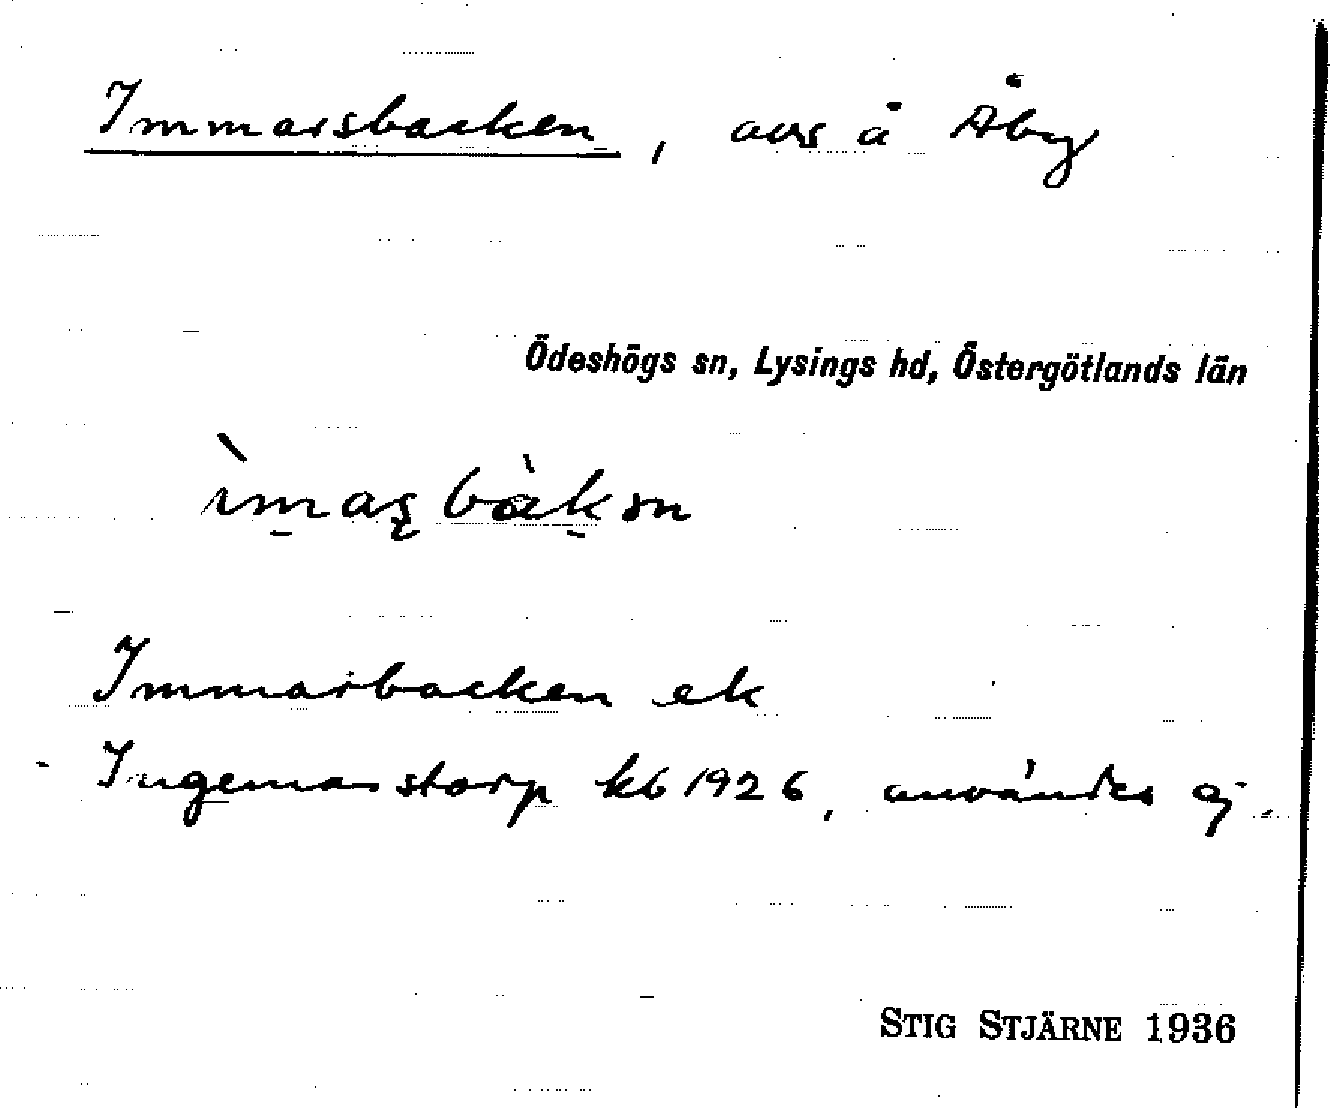 Immarsbacken, avs å Åby
Ödeshögs sn, Lysings hd, Östergötlands län
ìmaʂbàkən
Immarbacken ek
Ingemarstorp kb 1926, användes ej.
STIG STJÄRNE 1936